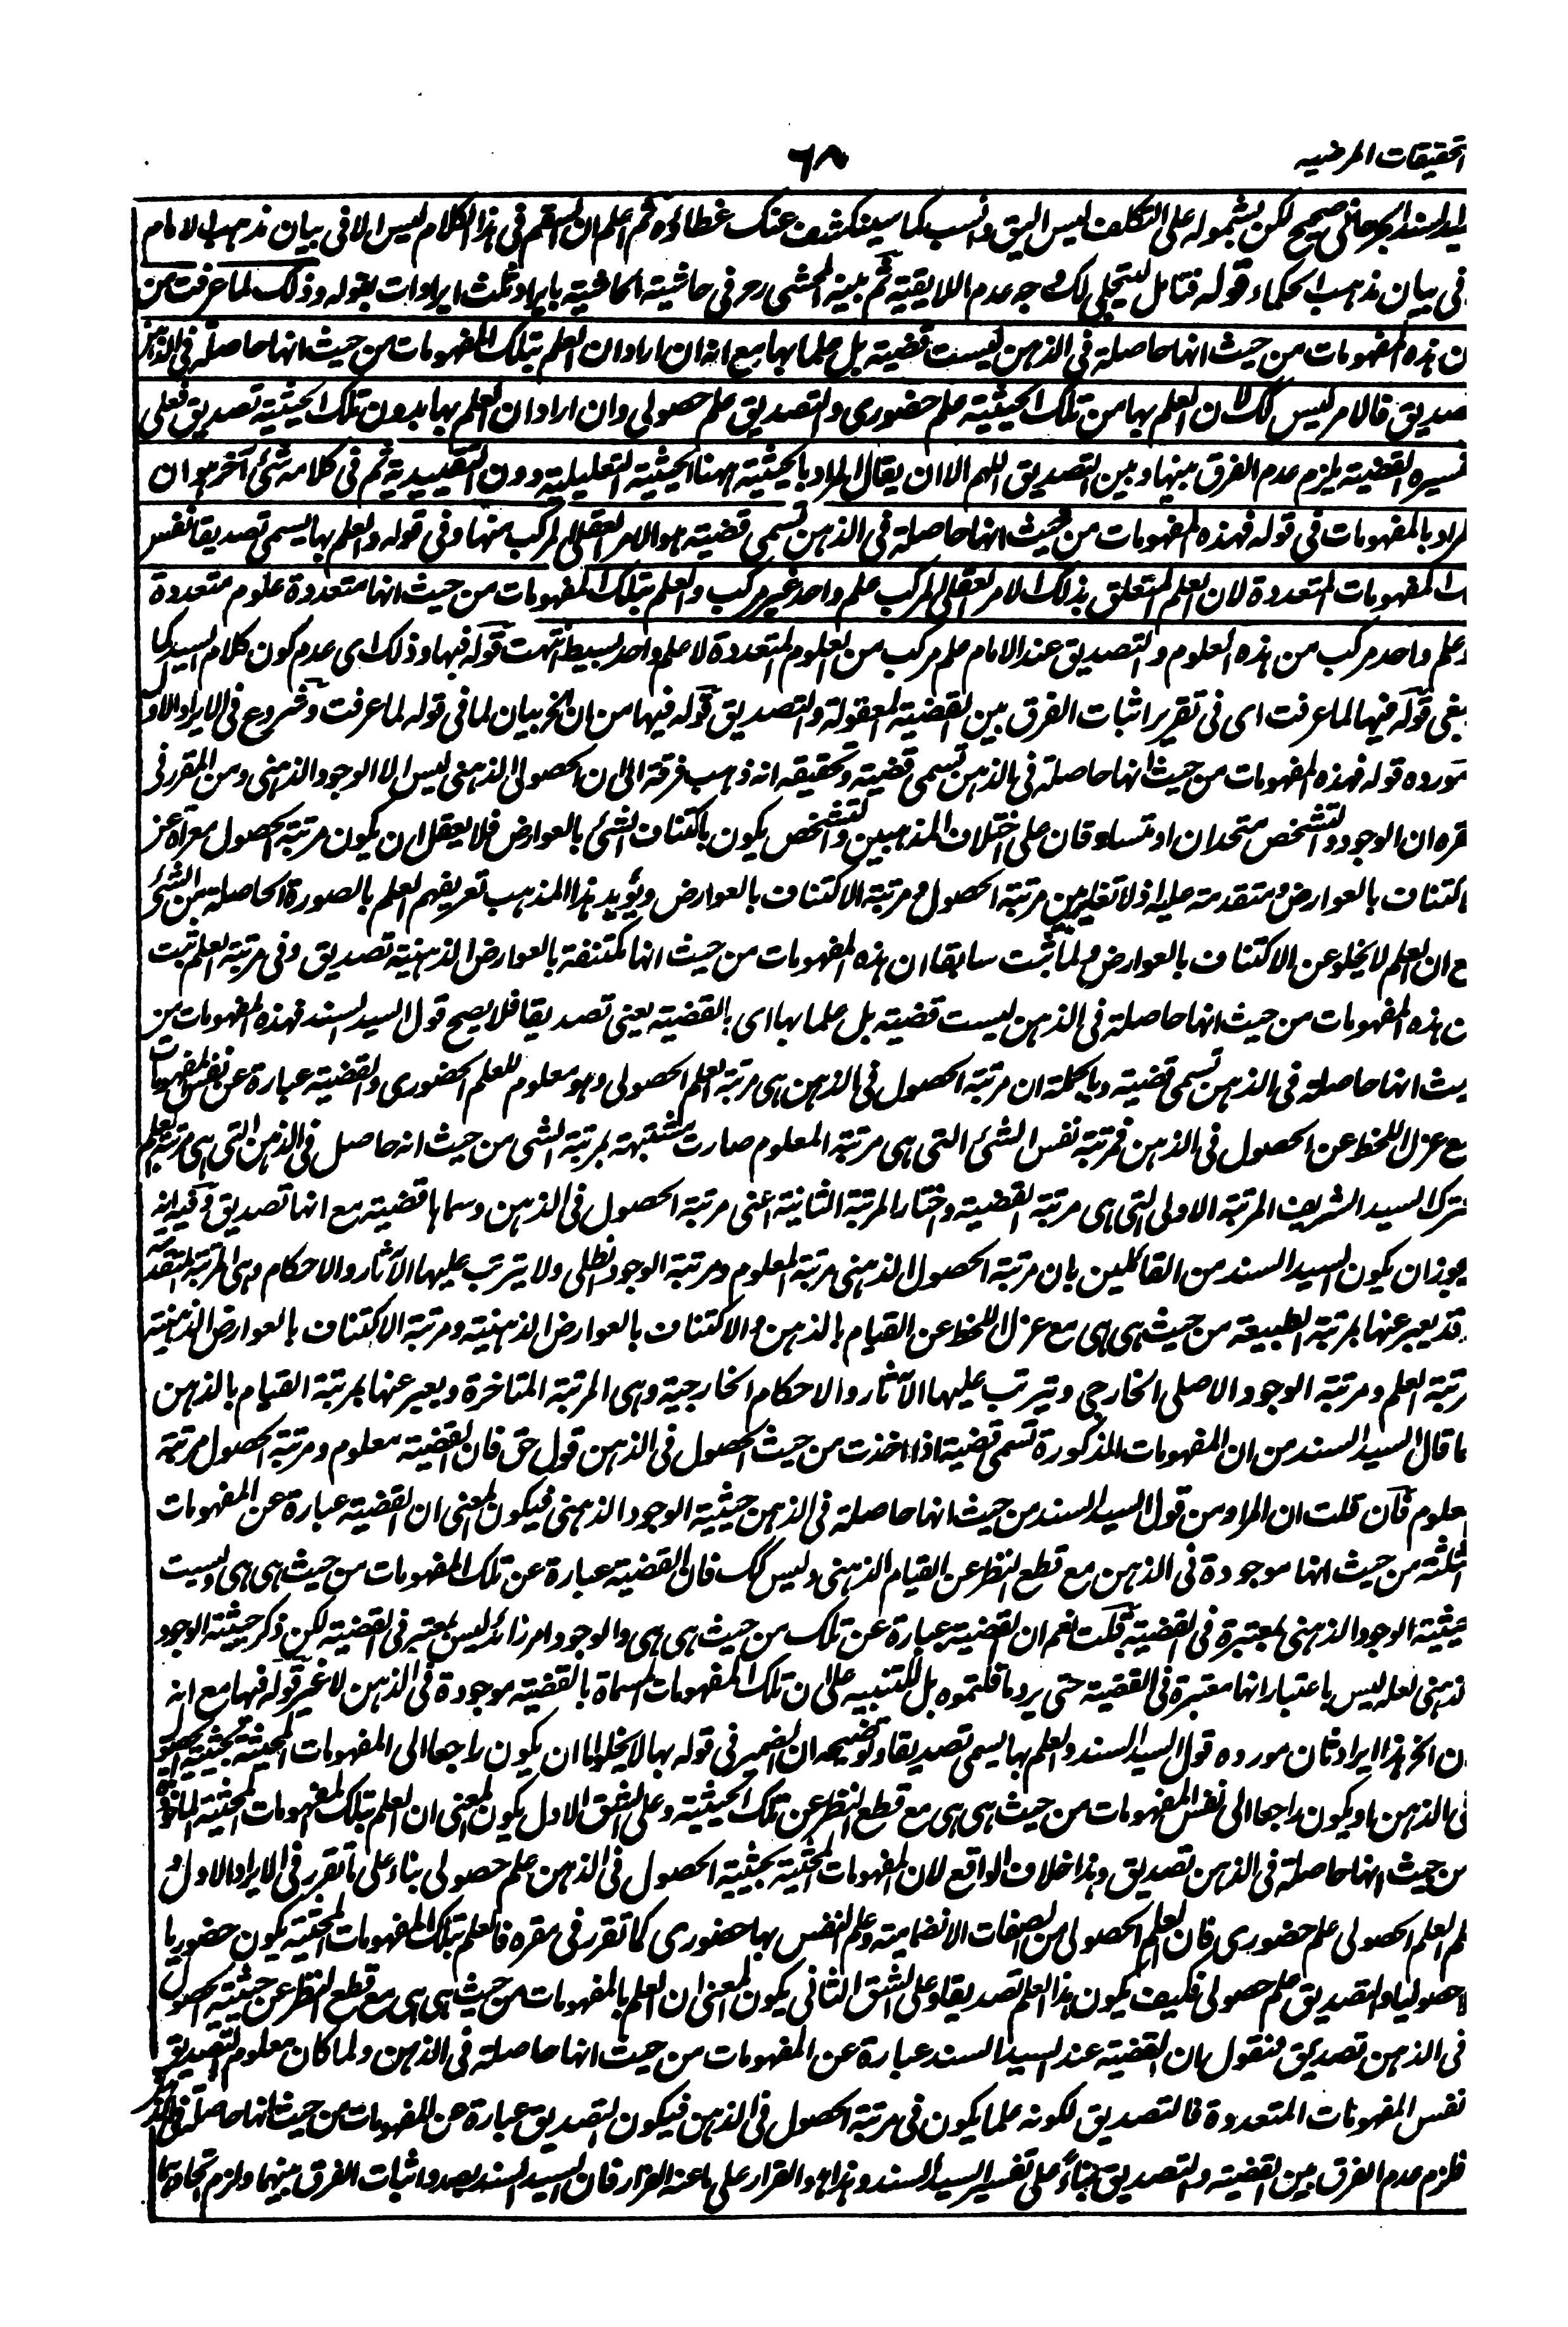 التحقيقات المرضيه
٦٨
السيد السند الجرجاني صحيح لكن بشموله على التكلف ليس اليق وانسب كما سينكشف عنك غطاؤه ثم اعلم ان المقم في هذا الكلام ليس الا في بيان مذهب الامام
في بيان مذهب الحكماء قوله فتامل ليتجلى لك وجه عدم اللايقية ثم بينه المحشي رحـ في حاشية الحاشية بايراد ثلث ايرادات بقوله وذلك لما عرفت من
ان هذه المفهومات من حيث انها حاصلة في الذهن ليست قضية بل علما بها مع انه ان اراد ان العلم بتلك المفهومات من حيث انها حاصلة في الذهن
تصديق فالامر ليس كك لان العلم بها من تلك الحيثية علم حضوري والتصديق علم حصولي وان اراد ان العلم بها بدون تلك الحيثية تصديق فعلى
تفسيره القضية يلزم عدم الفرق بينها وبين التصديق اللهم الا ان يقال المراد بالحيثية ههنا الحيثية التعليلية دون التقييدية ثم في كلامه شئ آخر هو ان
المراد بالمفهومات في قوله فهذه المفهومات من حيث انها حاصلة في الذهن تسمى قضية هو الامر العقلي المركب منها وفي قوله والعلم بها يسمى تصديقا نفس
تلك المفهومات المتعددة لان العلم المتعلق بذلك الامر العقلي المركب علم واحد غير مركب والعلم بتلك المفهومات من حيث انها متعددة علوم متعددة
وعلم واحد مركب من هذه العلوم والتصديق عند الامام علم مركب من العلوم المتعددة لا علم واحد بسيط انتهت قوله فيها وذلك اى عدم كون كلام السيد كما
ينبغي قوله فيها لما عرفت اى في تقرير اثبات الفرق بين القضية المعقولة والتصديق قوله فيها من ان الخ بيان لما في قوله لما عرفت وشروع في الايراد الاول
مورده قوله فهذه المفهومات من حيث انها حاصلة في الذهن تسمى قضية وتحقيقه انه ذهب فرقة الى ان الحصول الذهني ليس الا الوجود الذهني ومن المقرر في
مقره ان الوجود والتشخص متحدان او متساوقان على اختلاف المذهبين والتشخص يكون باكتناف الشئ بالعوارض فلا يعقل ان يكون مرتبة الحصول معراة عن
الاكتناف بالعوارض ومتقدمة عليه اذ لا تغاير بين مرتبة الحصول ومرتبة الاكتناف بالعوارض ويؤيد هذا المذهب تعريفهم العلم بالصورة الحاصلة من الشئ
مع ان العلم لا يخلو عن الاكتناف بالعوارض ولما ثبت سابقا ان هذه المفهومات من حيث انها مكتنفة بالعوارض الذهنية تصديق وفي مرتبة العلم ثبت
ان هذه المفهومات من حيث انها حاصلة في الذهن ليست قضية بل علما بها اى بالقضية يعني تصديقا فلا يصح قول السيد السند فهذه المفهومات من
حيث انها حاصلة في الذهن تسمى قضية وبالجملة ان مرتبة الحصول في الذهن هي مرتبة العلم الحصولي وهو معلوم للعلم الحضوري والقضية عبارة عن نفس المفهومات
مع عزل اللحظ عن الحصول في الذهن فمرتبة نفس الشئ التي هي مرتبة المعلوم صارت مشتبهة بمرتبة الشئ من حيث انه حاصل في الذهن التي هي مرتبة العلم
فترك السيد الشريف المرتبة الاولى التي هي مرتبة القضية واختار المرتبة الثانية اعني مرتبة الحصول في الذهن وسماها قضية مع انها تصديق وفيه انه
يجوز ان يكون السيد السند من القائلين بان مرتبة الحصول الذهني مرتبة المعلوم ومرتبة الوجود الظلي ولا يترتب عليها الآثار والاحكام وهي المرتبة المتقدمة
وقد يعبر عنها بمرتبة الطبيعة من حيث هي هي مع عزل اللحظ عن القيام بالذهن والاكتناف بالعوارض الذهنية ومرتبة الاكتناف بالعوارض الذهنية
مرتبة العلم ومرتبة الوجود الاصلي الخارجي ويترتب عليها الآثار والاحكام الخارجية وهي المرتبة المتاخرة ويعبر عنها بمرتبة القيام بالذهن
فما قال السيد السند من ان المفهومات المذكورة تسمى قضية اذا اخذت من حيث الحصول في الذهن قول حق فان القضية معلوم ومرتبة الحصول مرتبة
المعلوم فان قلت ان المراد من قول السيد السند من حيث انها حاصلة في الذهن حيثية الوجود الذهني فيكون المعنى ان القضية عبارة عن المفهومات
الثلثة من حيث انها موجودة في الذهن مع قطع النظر عن القيام الذهني وليس كك فان القضية عبارة عن تلك المفهومات من حيث هي هي وليست
حيثية الوجود الذهني بمعتبرة في القضية قلت نعم ان القضية عبارة عن تلك من حيث هي هي والوجود امر زائد ليس بمعتبر في القضية لكن ذكر حيثية الوجود
الذهني لعله ليس باعتبار انها معتبرة في القضية حتى يرد ما قلتموه بل للتنبيه على ان تلك المفهومات المسماة بالقضية موجودة في الذهن لا غير قوله فيها مع انه
ان الخ هذا ايراد ثان مورده قول السيد السند والعلم بها يسمى تصديقا وتوضيحه ان الضمير في قوله بها لا يخلو اما ان يكون راجعا الى المفهومات المحيثة بحيثية الحصول
في الذهن او يكون راجعا الى نفس المفهومات من حيث هي هي مع قطع النظر عن تلك الحيثية وعلى الشق الاول يكون المعنى ان العلم بتلك المفهومات المحيثة الماخوذة
من حيث انها حاصلة في الذهن تصديق وهذا خلاف الواقع لان المفهومات المحيثة بحيثية الحصول في الذهن علم حصولي بناء على ما تقرر في الايراد الاول و
علم العلم الحصولي علم حضوري فان العلم الحصولي من الصفات الانضمامية وعلم النفس بها حضوري كما تقرر في مقره فالعلم بتلك المفهومات المحيثة يكون حضوريا
لا حصوليا والتصديق علم حصولي فكيف يكون هذا العلم تصديقا وعلى الشق الثاني يكون المعنى ان العلم بالمفهومات من حيث هي هي مع قطع النظر عن حيثية الحصول
في الذهن تصديق فنقول ان القضية عند السيد السند عبارة عن المفهومات من حيث انها حاصلة في الذهن ولما كان معلوم التصديق
نفس المفهومات المتعددة فالتصديق لكونه علما يكون في مرتبة الحصول في الذهن فيكون التصديق عبارة عن المفهومات من حيث انها حاصلة في الذهن
فلزم عدم الفرق بين القضية والتصديق بناءً على تفسير السيد السند وهذا هو القرار على ما عنه الفرار فان السيد السند بصدد اثبات الفرق بينهما ولزم اتحادهما